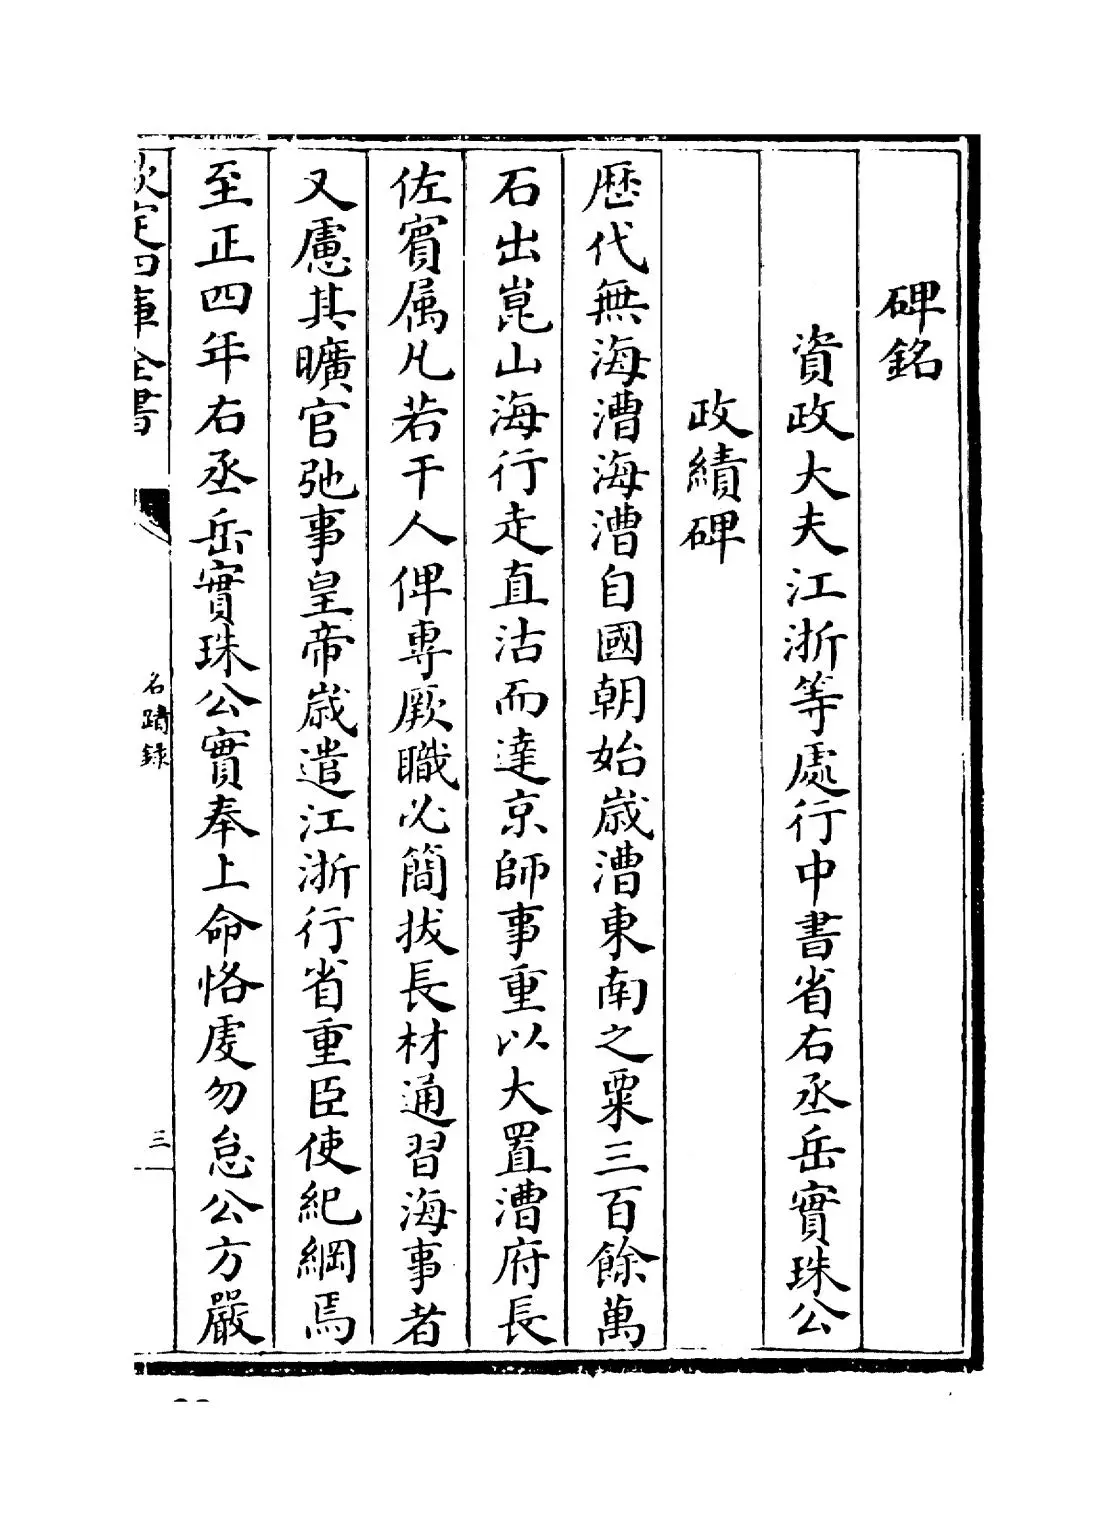 碑銘
資政大夫江浙等處行中書省右丞岳實珠公
政績碑
歴代無海漕海漕自國朝始歲漕東南之粟三百餘萬
石出崑山海行走直沽而達京師事重以大置漕府長
佐賓属凡若干人俾專厥職必簡拔長材通習海事者
又慮其曠官弛事皇帝歲遣江浙行省重臣使紀綱焉
至正四年右丞岳實珠公實奉上命恪虔勿怠公方嚴
欽定四庫全書
名蹟録
三